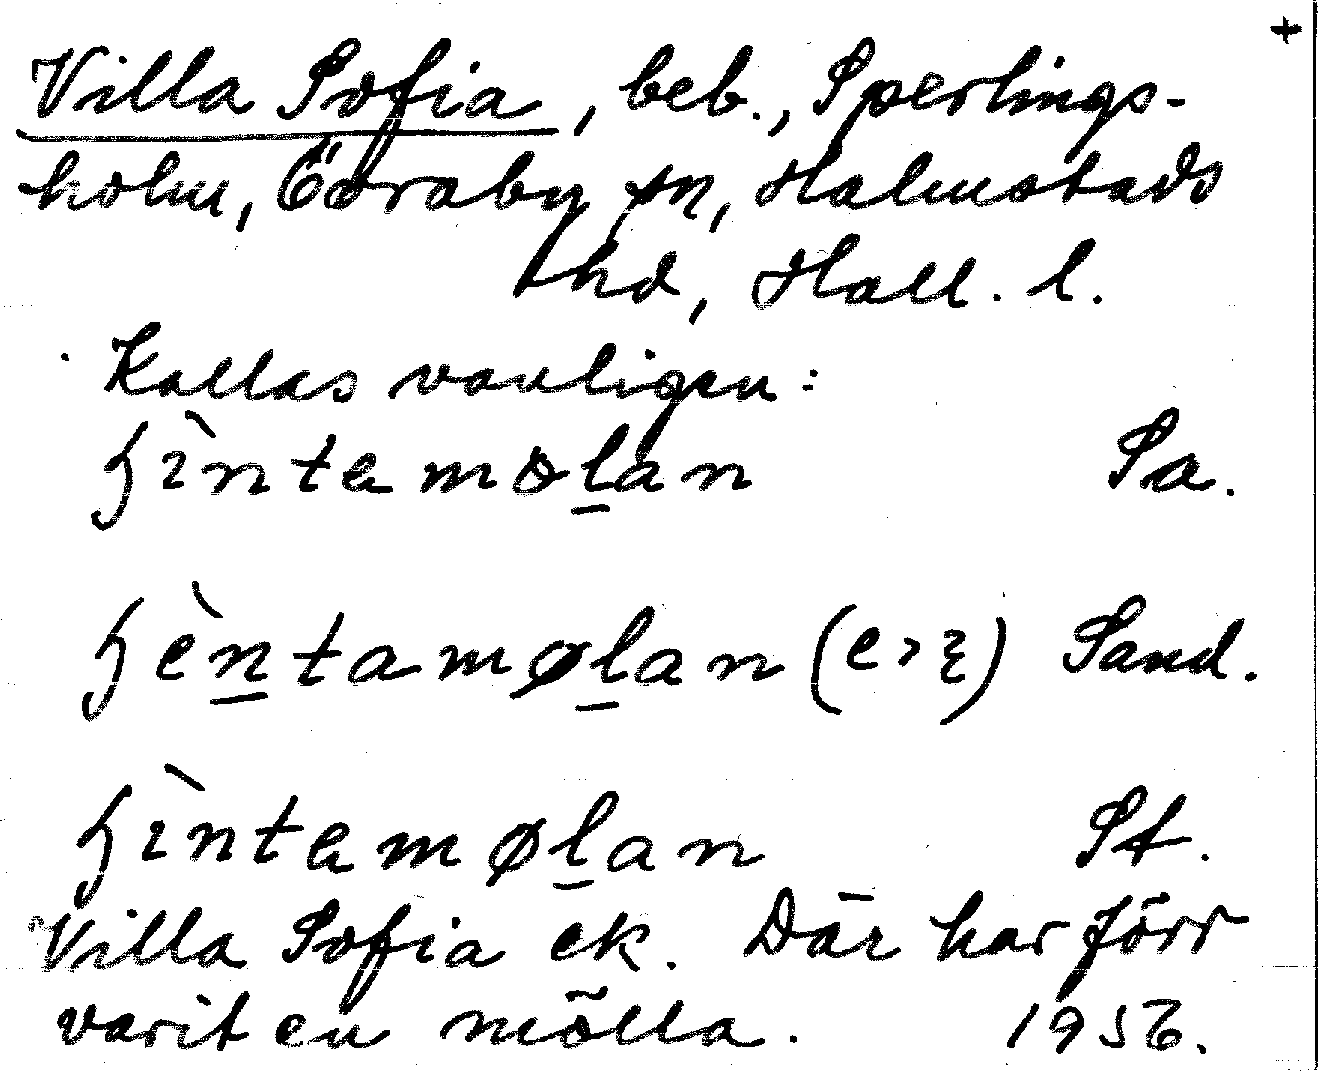 +
Villa Sofia, beb., Sperlings-
holm, Övraby sn, Halmstads
hd, Hall. l.
Kallas vanligen:
hìntemølan Sa.
hèntamølan (e > ɛ) Sand.
hìntemølan St.
Villa Sofia ek. Där har förr
varit en mölla. 1956.